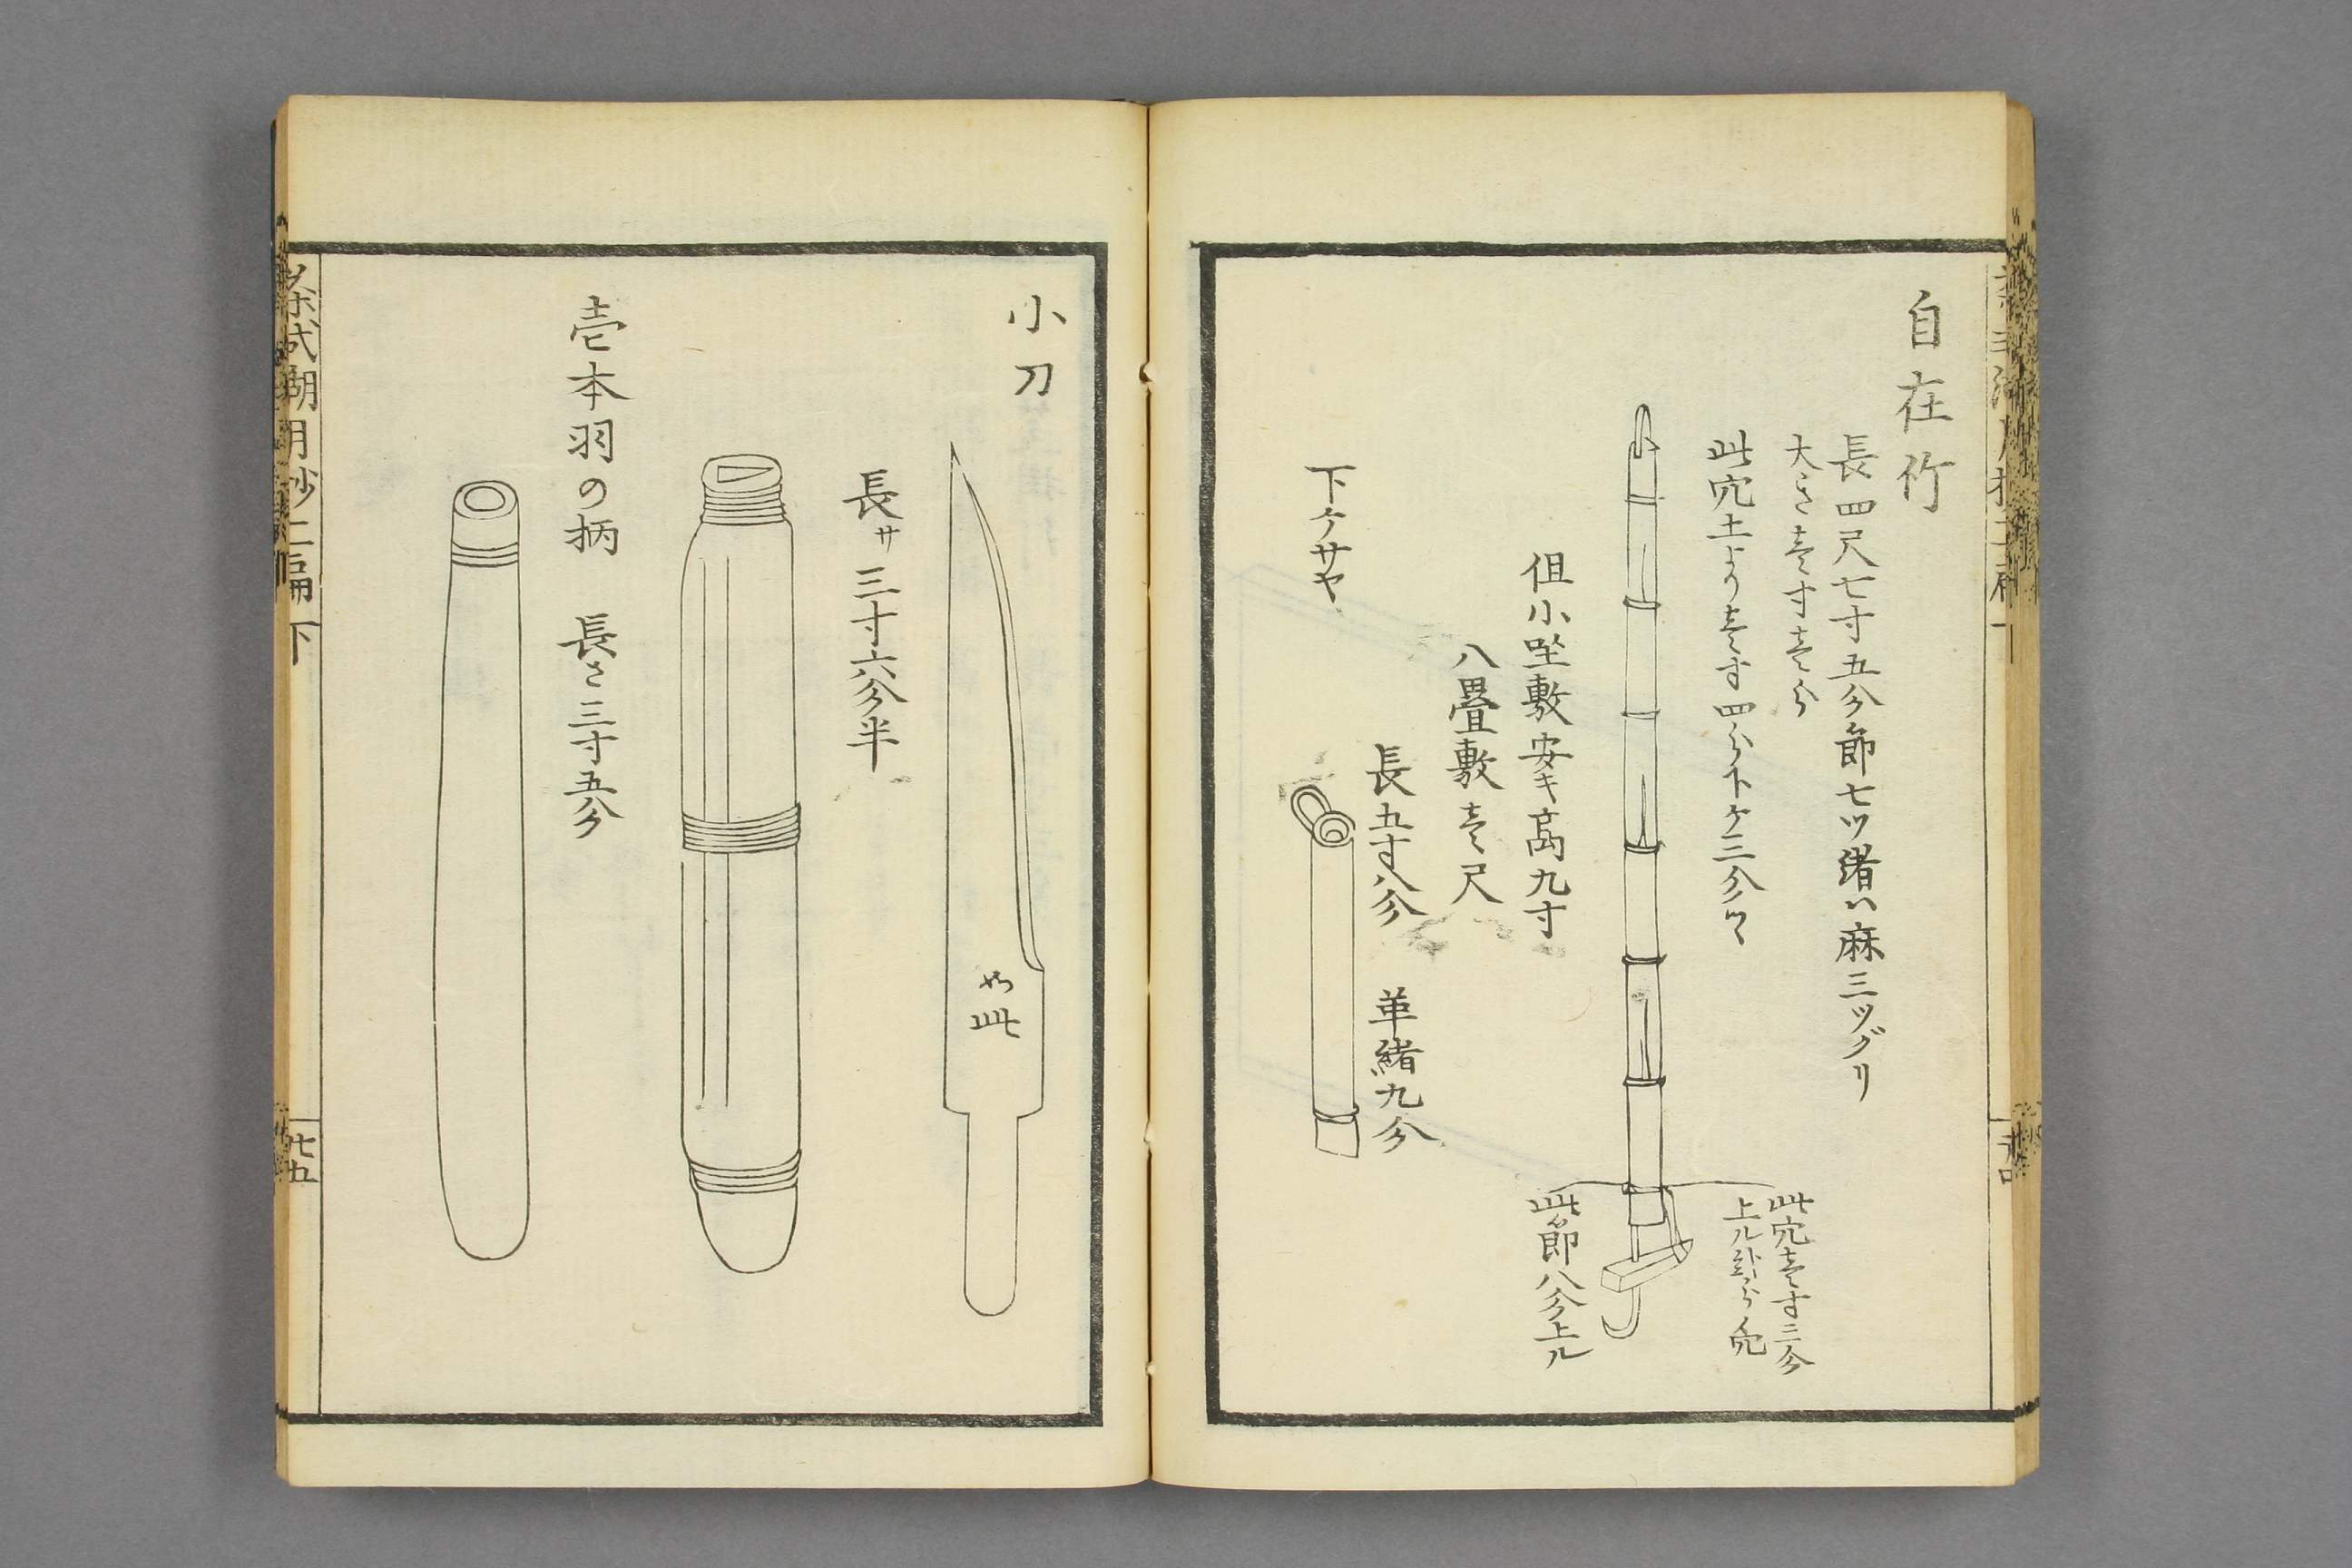 自在竹
長四尺七寸五分節七ツ緒ハ麻三ツグリ
大さ壱寸壱分
此穴土より壱寸四分下ケ三分ツヽ
此穴壱寸三分
上ル
此節八分上ル
但小坐敷安キ高九寸
八畳敷壱尺
長五寸八分 革緒九分
下ケサヤ
小刀
如此
長サ三寸六分半
壱本羽の柄 長さ三寸五分
茶式湖月抄二編下
廿五